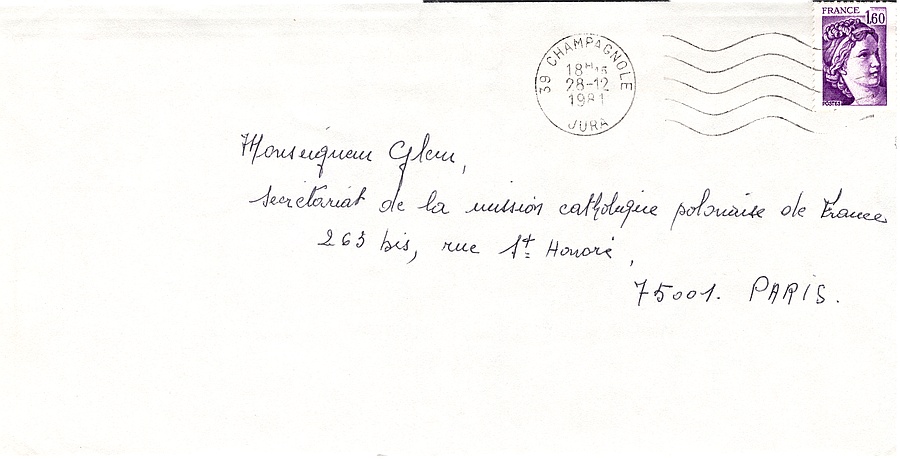 FRANCE 1,60
POSTES
39 CHAMPAGNOLE
18H
28-12
1981
JURA
Monseigneur Glem,
secrétariat de la mission catholique polonaise de France
263 bis, rue St Honoré,
75001. PARIS.